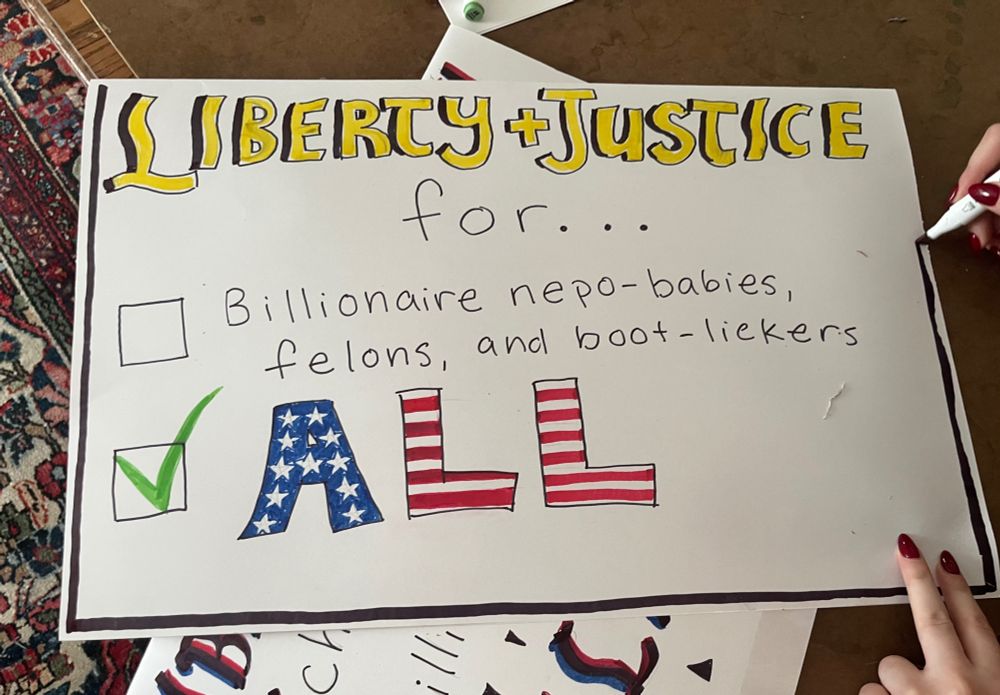 LIBERTY + JUSTICE
for...
Billionaire nepo-babies,
felons, and boot-lickers
ALL